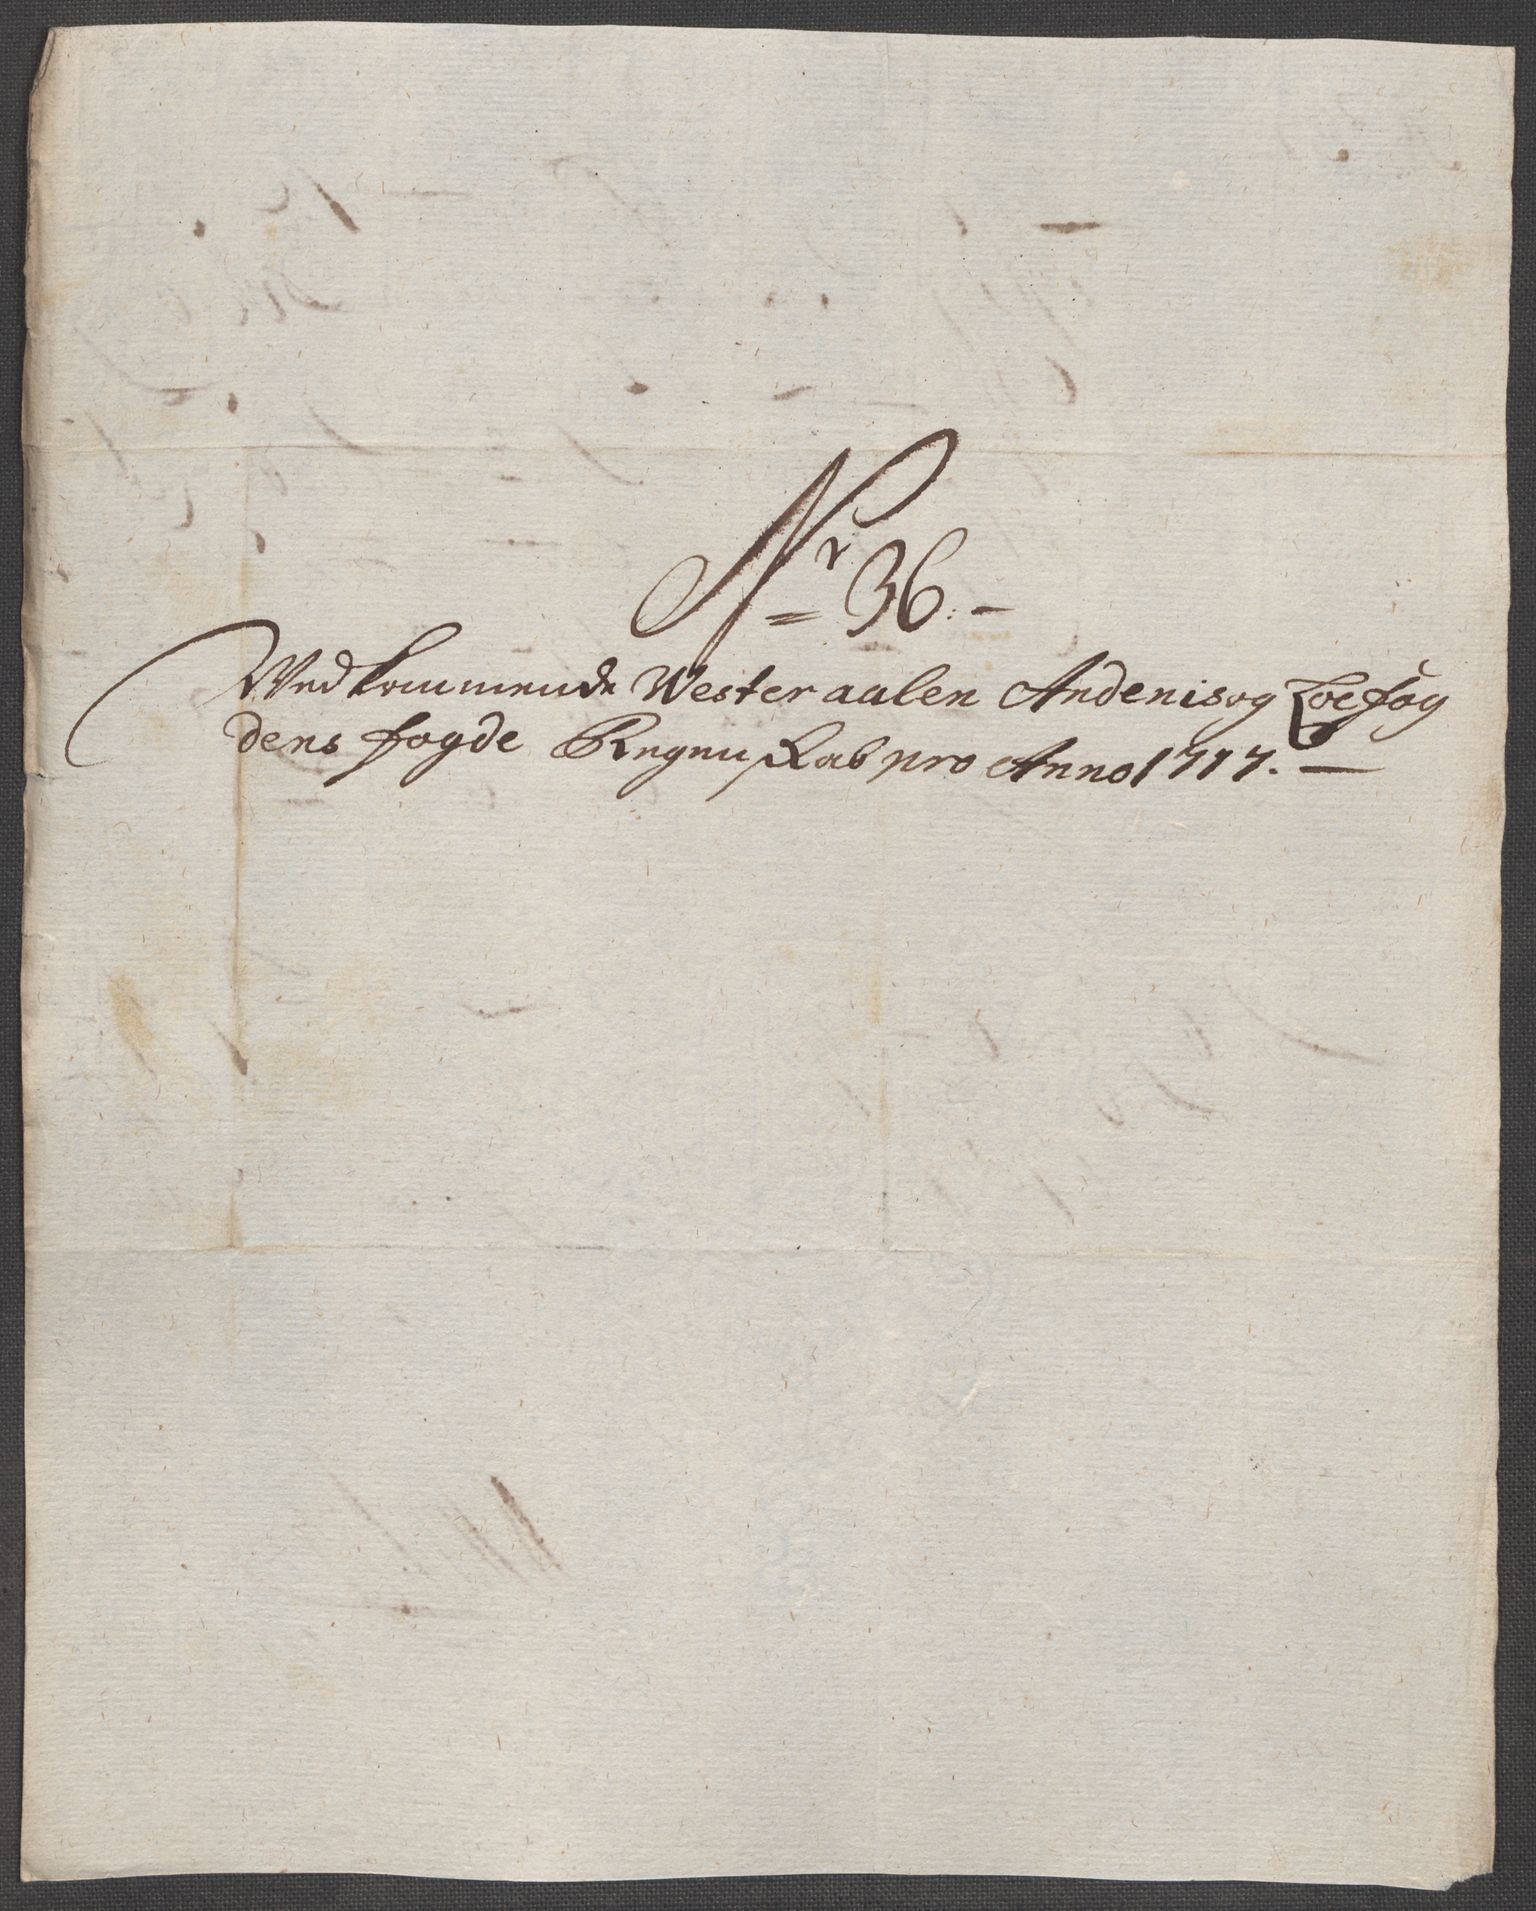 Nr 36.-
Vedkommende Westeraalen Andenis og Loefog
dens fogde Regnuskab pro Anno 1717.-